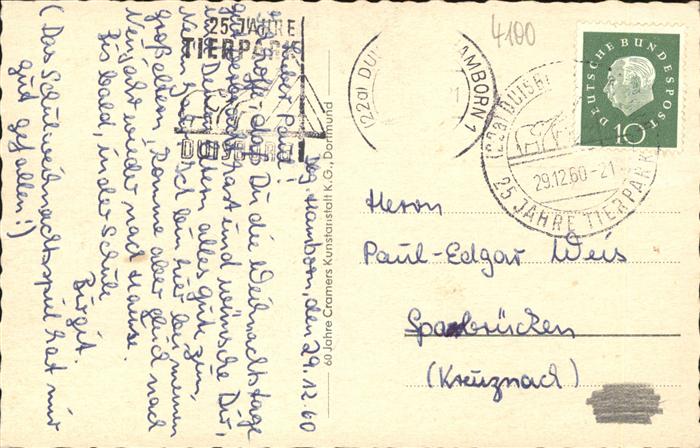 4100
25 JAHRE
TIERPARK
DUISBURG
(22a) DUISBURG-HAMBORN 1
(22a) DUISBURG
29.12.60-21
25 JAHRE TIERPARK
DEUTSCHE BUNDESPOST
10
Dbg. Hamborn, den 29.12.60
Lieber Paul!
Ich hoffe, daß Du die Weihnachtstage
gut verbracht hast und wünsche Dir,
alles gute zum
Jahr. Ich bin hier bei meinen
Großeltern, komme aber gleich nach
Neujahr wieder nach Hause.
Bis bald, in der Schule
Birgit.
(Das Schulweihnachtsspiel hat mir
gut gefallen!)
60 Jahre Cramers Kunstanstalt K.G., Dortmund
Herrn
Paul-Edgar Weis
Sponbrücken
(Kreuznach)